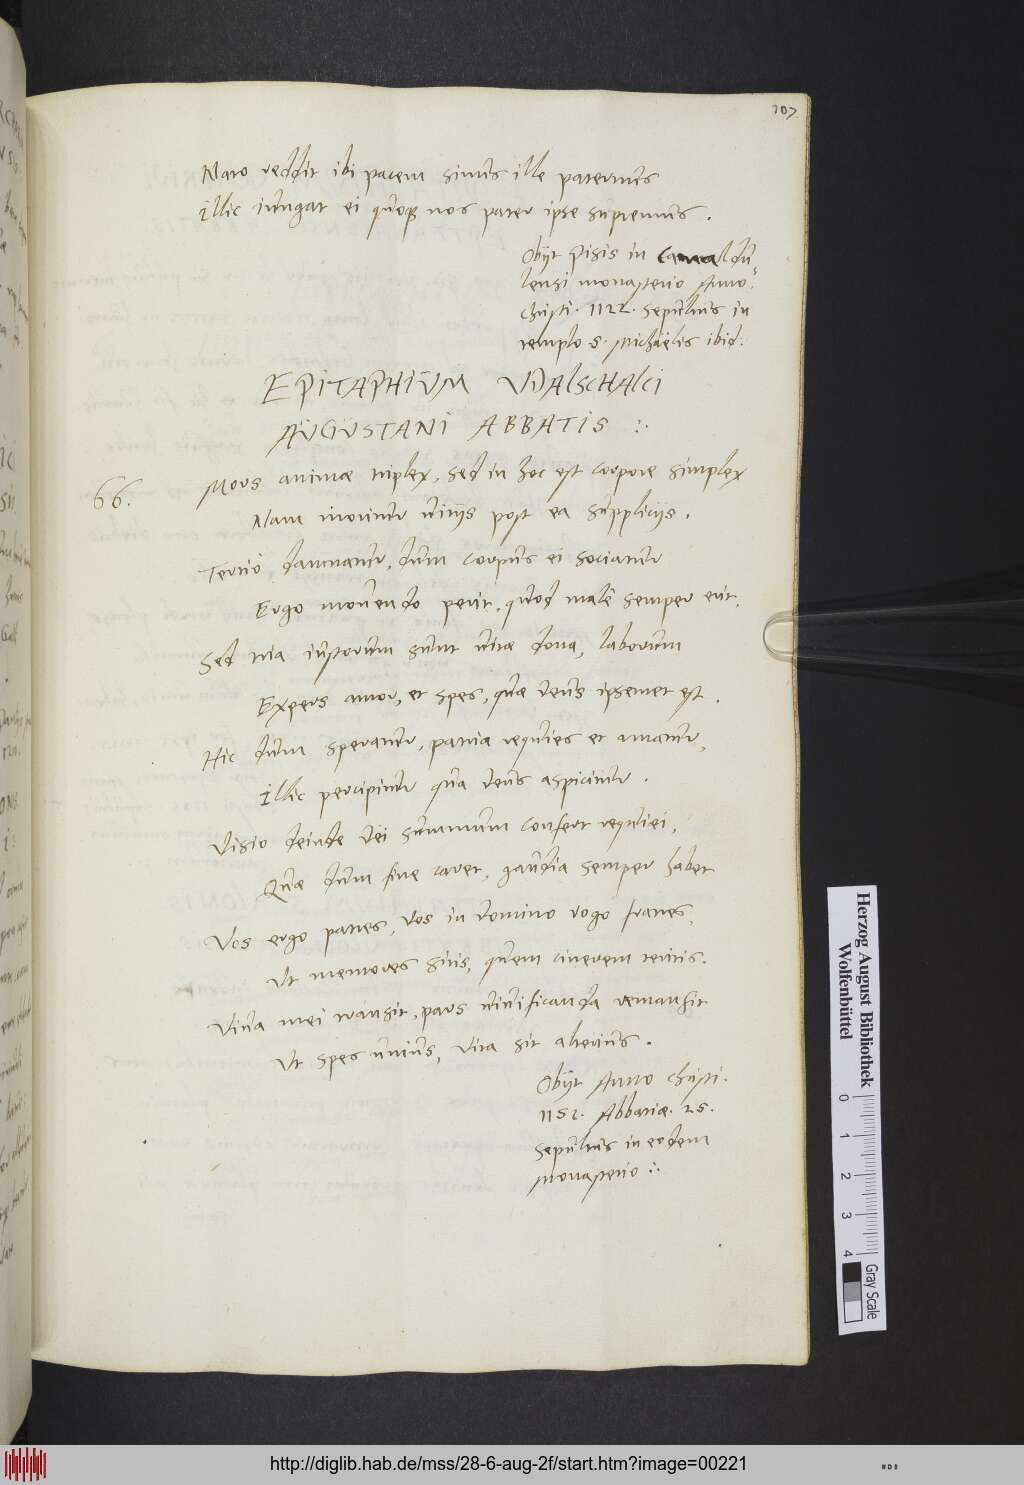 107.
Nato reddit ibi pacem sinus ille paternus
Illic iungat ei quoq; nos pater ipse supremus.
Obijt Pisis in Camaldu
lensi monasterio Anno
Christi. 1122. Sepultus in
templo S. Michaëlis ibid:
EPITAPHIUM UDAlSCHAlCI
AUGUSTANI ABBATIS :.
66.
Mors animæ triplex, sed in hoc est corpore simplex
Nam moritur vitijs post ea supplicijs.
Tertiò damnantur, dum corpus ei sociatur
Ergo mouendo perit, quod malè semper erit.
Sed tria iustorum sunt vitæ dona, laborum
Expers amor, et spes, quæ deus ipsemet est.
Hic dum sperantur, patria requies et amantur,
Illic percipitur qua deus aspicitur.
Visio deinde dei summum confert requiei,
Quæ dum fine caret, gaudia semper habet
Vos ergo patres, vos in domino rogo fratres,
Ut memores sitis, quem cinerem teritis.
Viua mei transit, pars viuificanda remansit
Ut spes unius, vita sit alterius.
Obijt Anno Christi.
1152. Abbatiæ. 25.
Sepultus in eodem
Monasterio :.
Herzog August Bibliothek
Wolfenbüttel
0 1 2 3 4
Gray Scale
http://diglib.hab.de/mss/28-6-aug-2f/start.htm?image=00221